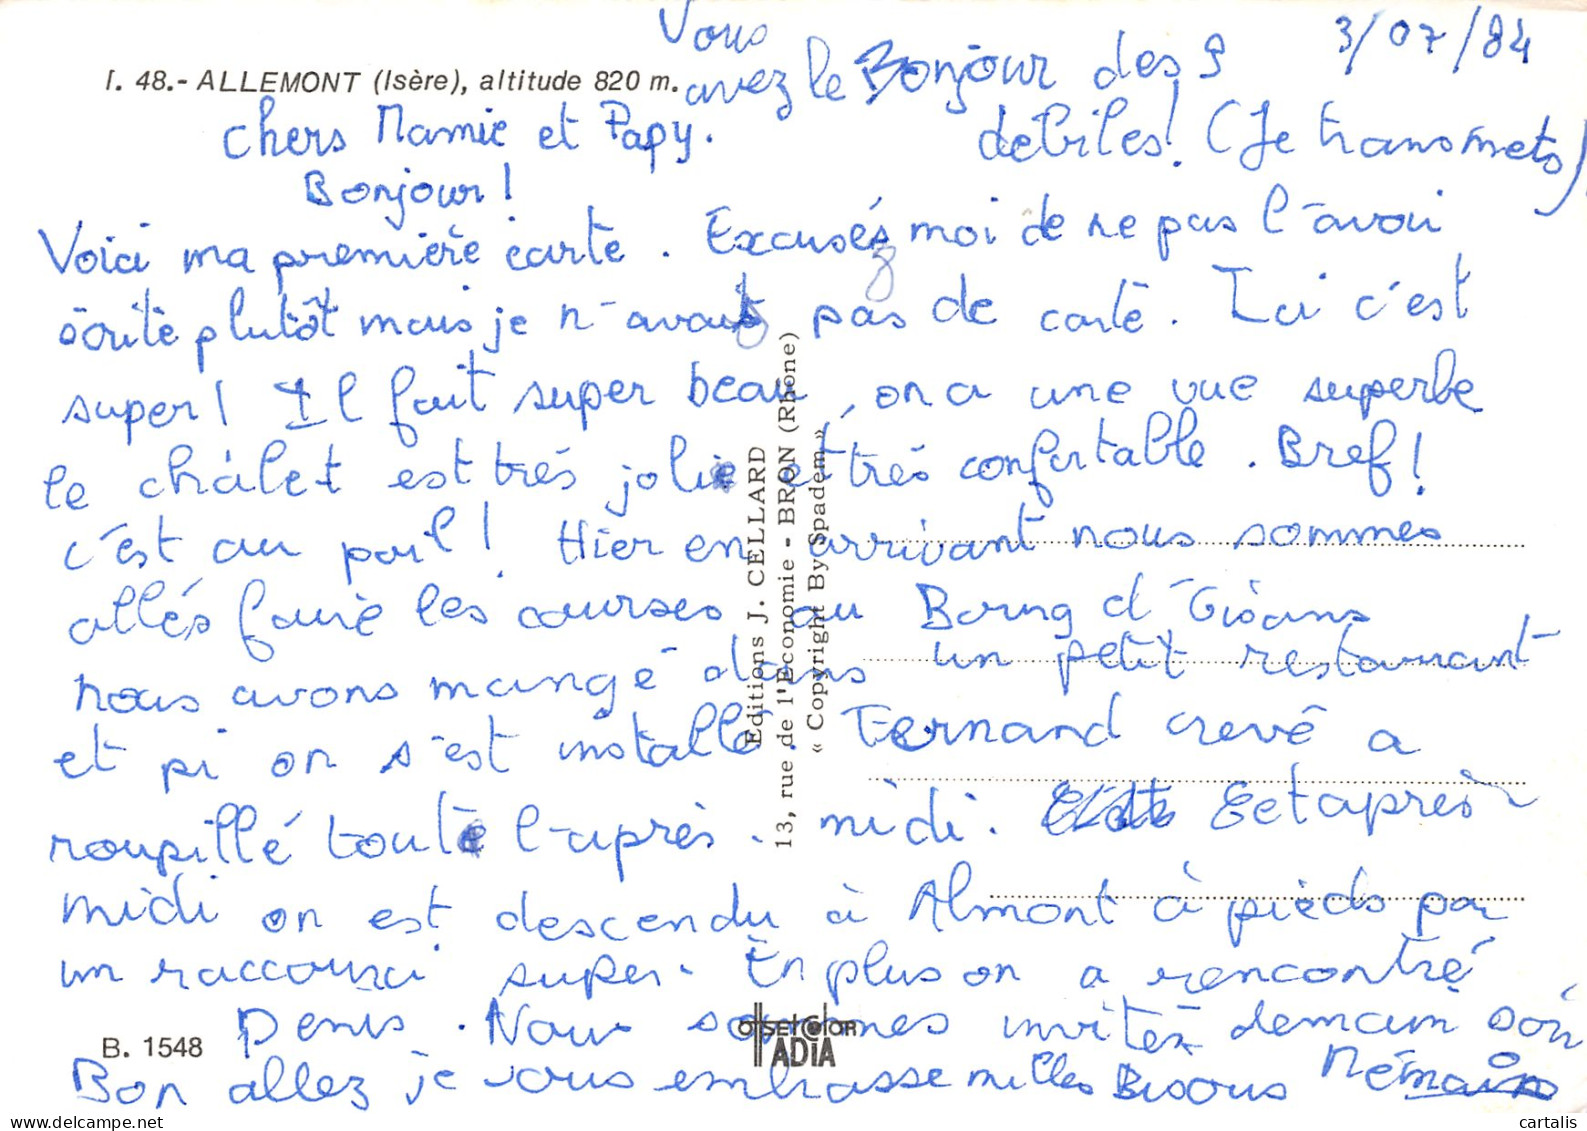 Vous
avez le Bonjour des 9
3/07/84
I. 48.- ALLEMONT (Isère), altitude 820 m.
débiles! (Je transmets)
Chers Mamie et Papy.
Bonjour!
Voici ma première carte. Excusés moi de ne pas l'avoir
écrite plutôt mais je n'avais pas de carte. Ici c'est
super! Il fait super beau, on a une vue superbe
le châlet est très joli et très confortable. Bref!
c'est au poil! Hier en arrivant nous sommes
allés faire les courses au Bourg d'Oisans
nous avons mangé dans un petit restaurant
et pi on s'est installé. Fernand crevé a
roupillé toute l'après-midi. Cet après
midi on est descendu à Almont à pieds par
un raccourci super. En plus on a rencontré
Denis. Nous sommes invités demain soir
Bon allez je vous embrasse milles Bisous
Editions J. CELLARD
13, rue de l'Economie - BRON (Rhône)
« Copyright By Spadem »
B. 1548
OFFSETCOLOR
IADIA